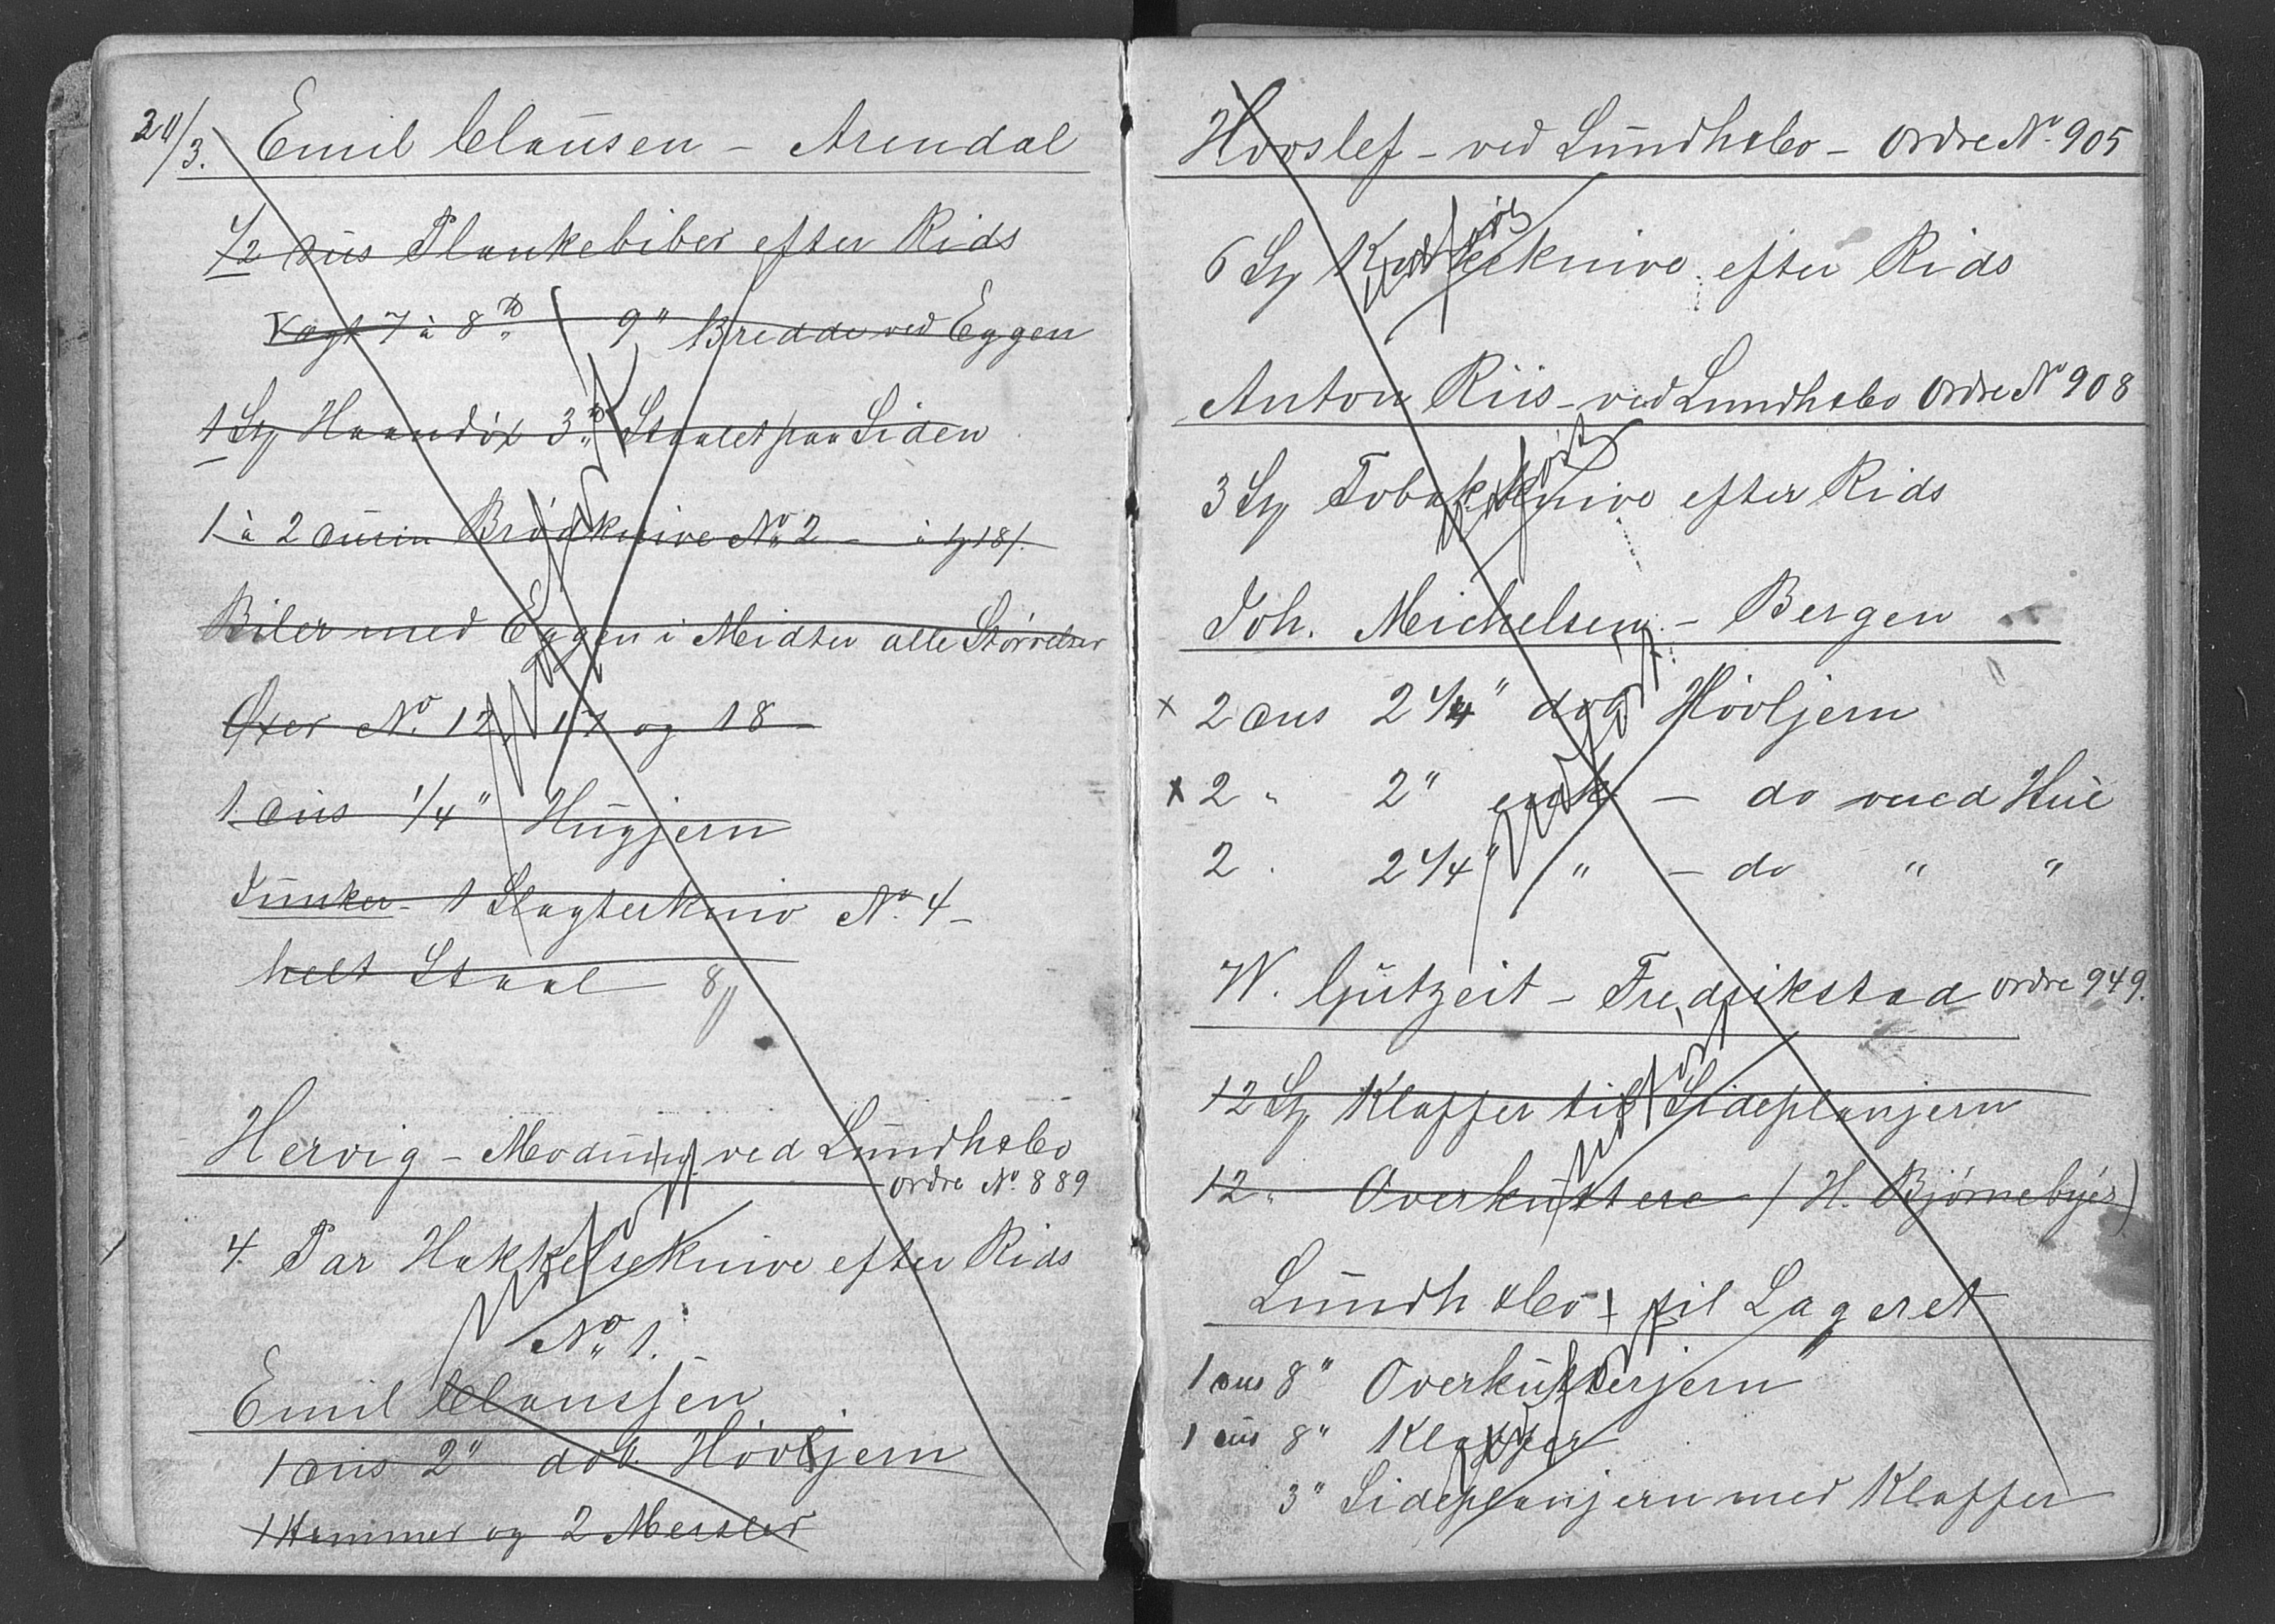 20/3. Emil Claŭsen - Arendal
1/2 Dŭs Plankebiler efter Rids
Vægt 7 à 8 ℔ 9" Bredde ved Eggen
1 St Haandöx 3 ℔ Staalet paa Siden
1 à 2 Dŭsin Brödknive No 2 - à 18/.
Biler med Eggen i Midten alle Störrelser
Öxer No. 12, 17 og 18
1 Dŭs 1/4" Hŭgjern
Jŭnker - 1 Slagterkniv No. 4 -
helt Staal 8/
Hervig - Modŭm ved Lŭndh & Co
ordre No. 889
4. Par Hakkelseknive efter Rids
No 1.
Emil Clanssen
1 Dŭs 2" dob. Hövljern
1 Hammer og 2 Meisler
Hovslef - ved Lŭndh & Co - Ordre No. 905
6 St Korkeknive efter Rids
Udfört
Anton Riis - ved Lundh & Co Ordre No 908
3 St Tobakknive efter Rids
Udfört
Joh. Michelsen. - Bergen
x 2 Dus 2 1/4" dob Hövljern
x 2 " 2" enk - do med Hŭl
2 " 2 1/4" " - do " "
Udfört
W. Gŭtzeit - Fredrikstad ordre 949.
12 St Klaffer til Sideplanjern
12 " Overkŭttere (H. Bjørnebyes)
Udfört
Lŭndh & Co - til Lageret
1 Dus 8" Overkŭtterjern
1 Dŭs 8" Klaffer
3" Sideplanjern med Klaffer
Udfört